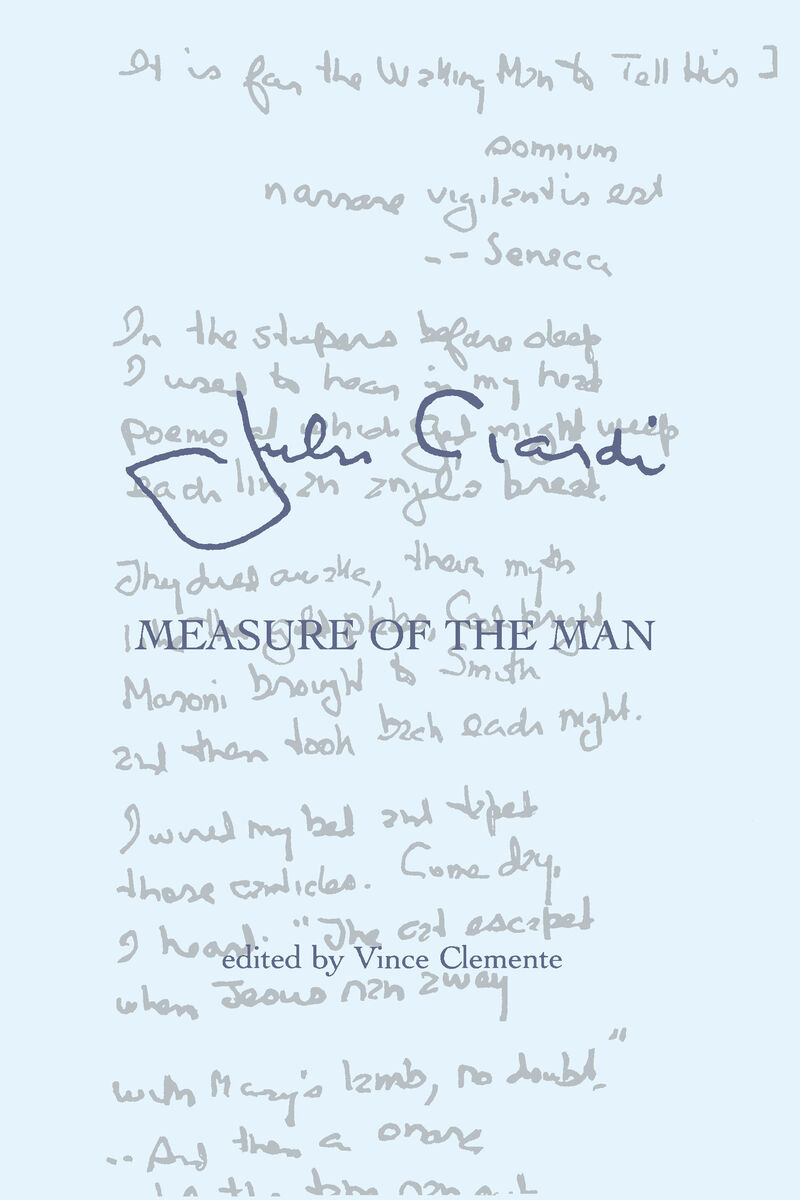 It is for the Waking Man to Tell His ]
somnum
narrare vigilantis est
-- Seneca
In the stupors before sleep
I used to hear in my head
poems at which God might weep
John Ciardi
each line an angel's breath.
They dried awake, their myth
MEASURE OF THE MAN
Moroni brought to Smith
and then took back each night.
I wired my bed and taped
those canticles. Come day,
I heard: "The cat escaped
edited by Vince Clemente
when Jesus ran away
with Mary's lamb, no doubt."
-- And then a snore
the tape ran out